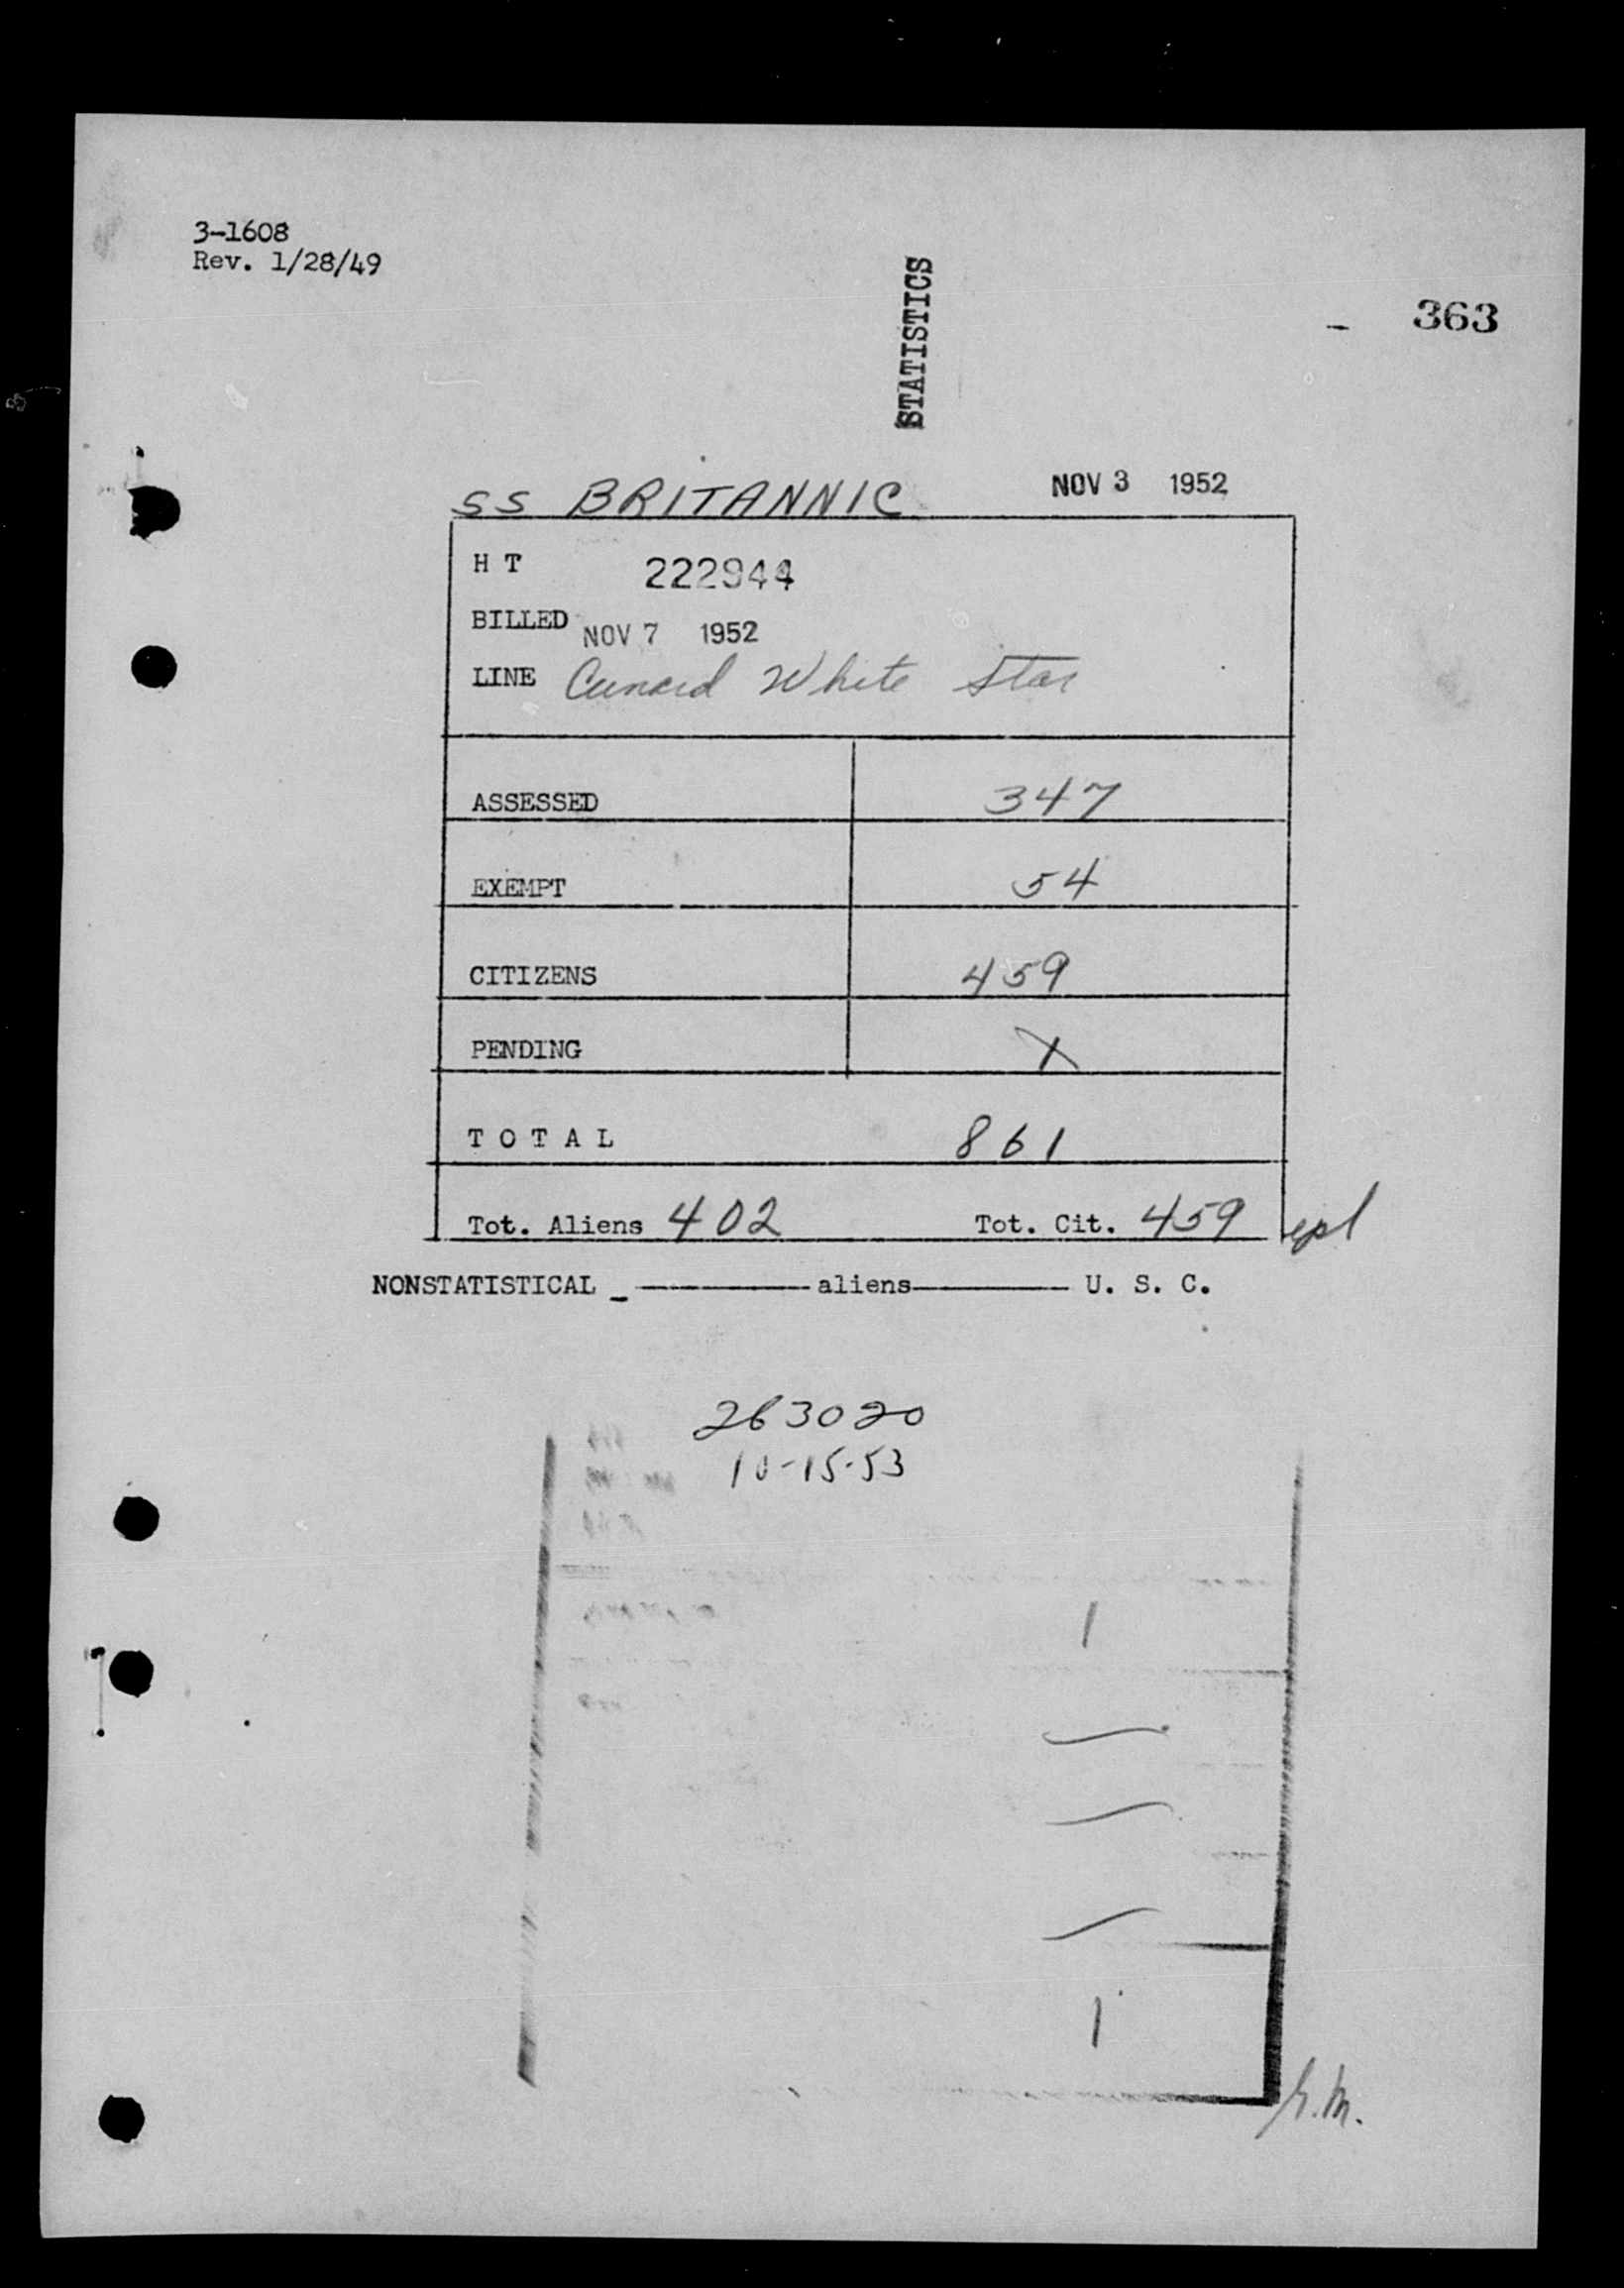 3-1608
Rev. 1/28/49
STATISTICS
- 363
SS BRITANNIC NOV 3 1952
H T 222944
BILLED NOV 7 1952
LINE Cunard White Star
ASSESSED 347
EXEMPT 54
CITIZENS 459
PENDING X
T O T A L 861
Tot. Aliens 402 Tot. Cit. 459
NONSTATISTICAL _ ———— aliens ———— U. S. C.
263020
10-15-53
1
1